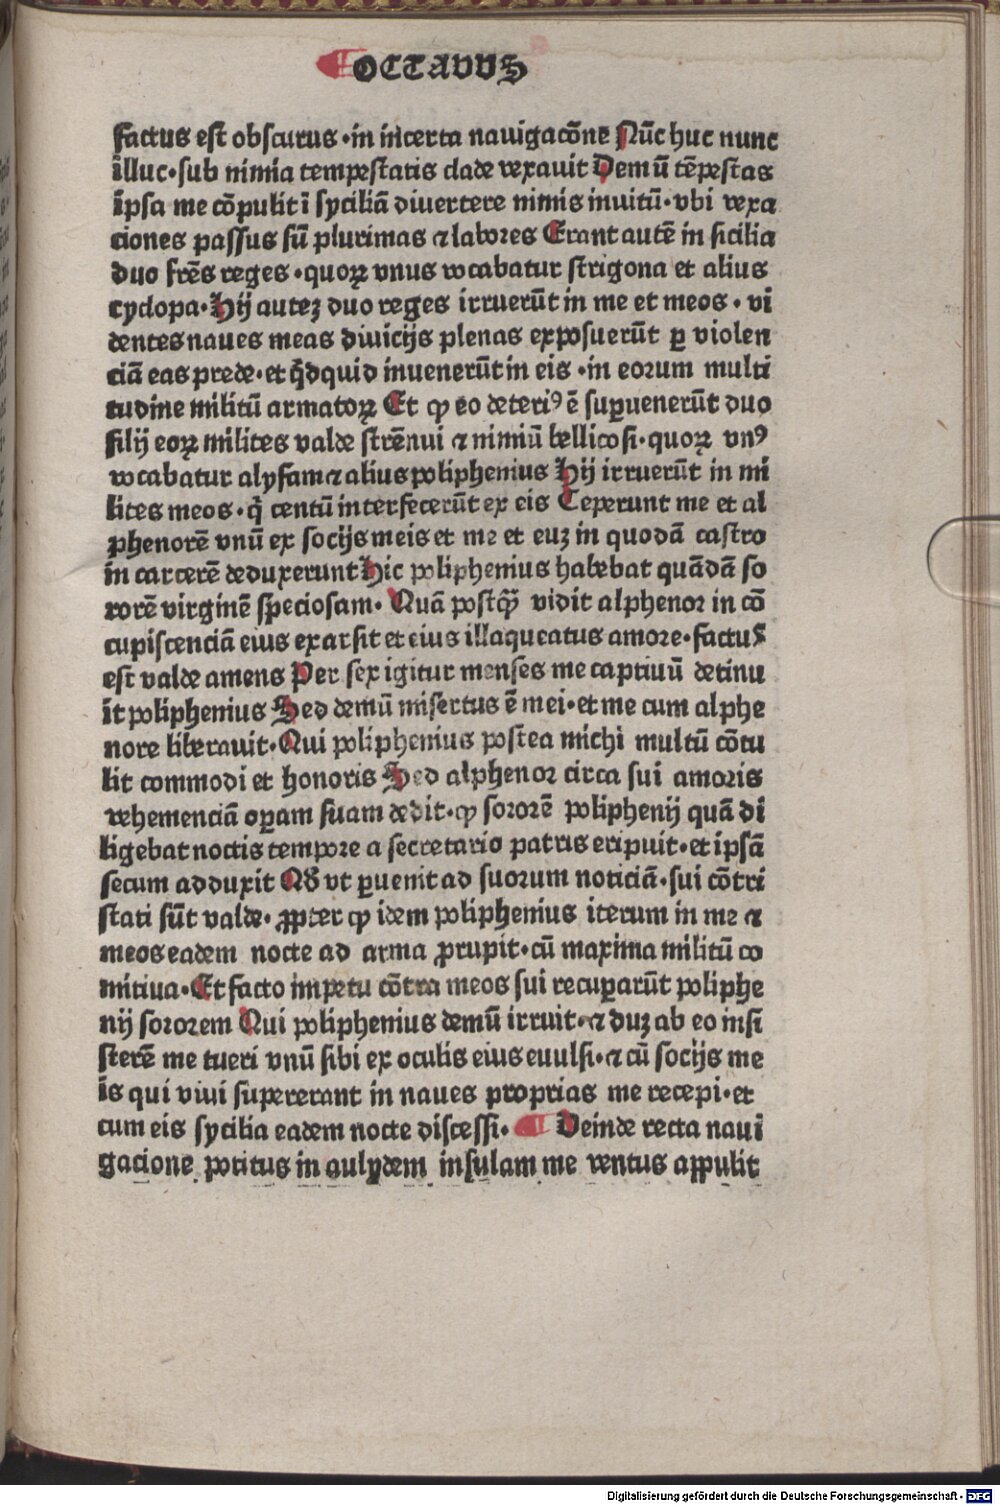 ¶ OCTAVVS
factus est obscurus ·in incerta nauigacōne Nūc huc nunc
illuc·sub nimia tempestatis clade vexauit Demū tēpestas
ipsa me cōpulit ī syciliā diuertere nimis inuitū·vbi vexa
ciones passus sū plurimas ⁊ labores Erant autē in sicilia
duo frēs reges ·quoꝝ vnus vocabatur strigona et alius
cyclopa·Hij auteꝫ duo reges irruerūt in me et meos · vi
dentes naues meas diuicijs plenas exposuerūt ꝑ violen
ciā eas prede·et q̄dquid inuenerūt in eis ·in eorum multi
tudine militū armatoꝝ Et ꝙ eo deteriꝰ ē suꝑuenerūt duo
filij eoꝝ milites valde strēnui ⁊ nimiū bellicosi·quoꝝ vnꝰ
vocabatur alyfam ⁊ alius poliphenius Hij irruerūt in mi
lites meos·q̄ centū interfecerūt ex eis Ceperunt me et al
phenorē vnū ex socijs meis et me et euꝫ in quodā castro
in carcerē deduxerunt Hic poliphenius habebat quādā so
rorē virginē speciosam· Quā postꝙ̄ vidit alphenor in cō
cupiscenciā eius exarsit et eius illaqueatus amore·factus
est valde amens Per sex igitur menses me captiuū detinu
it poliphenius Sed demū misertus ē mei·et me cum alphe
nore liberauit·Qui poliphenius postea michi multū cōtu
lit commodi et honoris Sed alphenor circa sui amoris
vehemenciā oꝑam suam dedit·ꝙ sororē poliphenij quā di
ligebat noctis tempore a secretario patris eripuit·et ipsā
secum adduxit Qđ vt ꝑuenit ad suorum noticiā·sui cōtri
stati sūt valde· ꝓpter ꝙ idem poliphenius iterum in me ⁊
meos eadem nocte ad arma ꝓrupit·cū maxima militū co
mitiua·Et facto impetu cōtra meos sui recuꝑarūt poliphe
nij sororem Qui poliphenius demū irruit·⁊ duꝫ ab eo insi
sterē me tueri vnū sibi ex oculis eius euulsi·⁊ cū socijs me
is qui viui supererant in naues proprias me recepi·et
cum eis sycilia eadem nocte discessi· ¶ Deinde recta naui
gacione potitus in aulydem insulam me ventus aꝓpulit
Digitalisierung gefördert durch die Deutsche Forschungsgemeinschaft - DFG